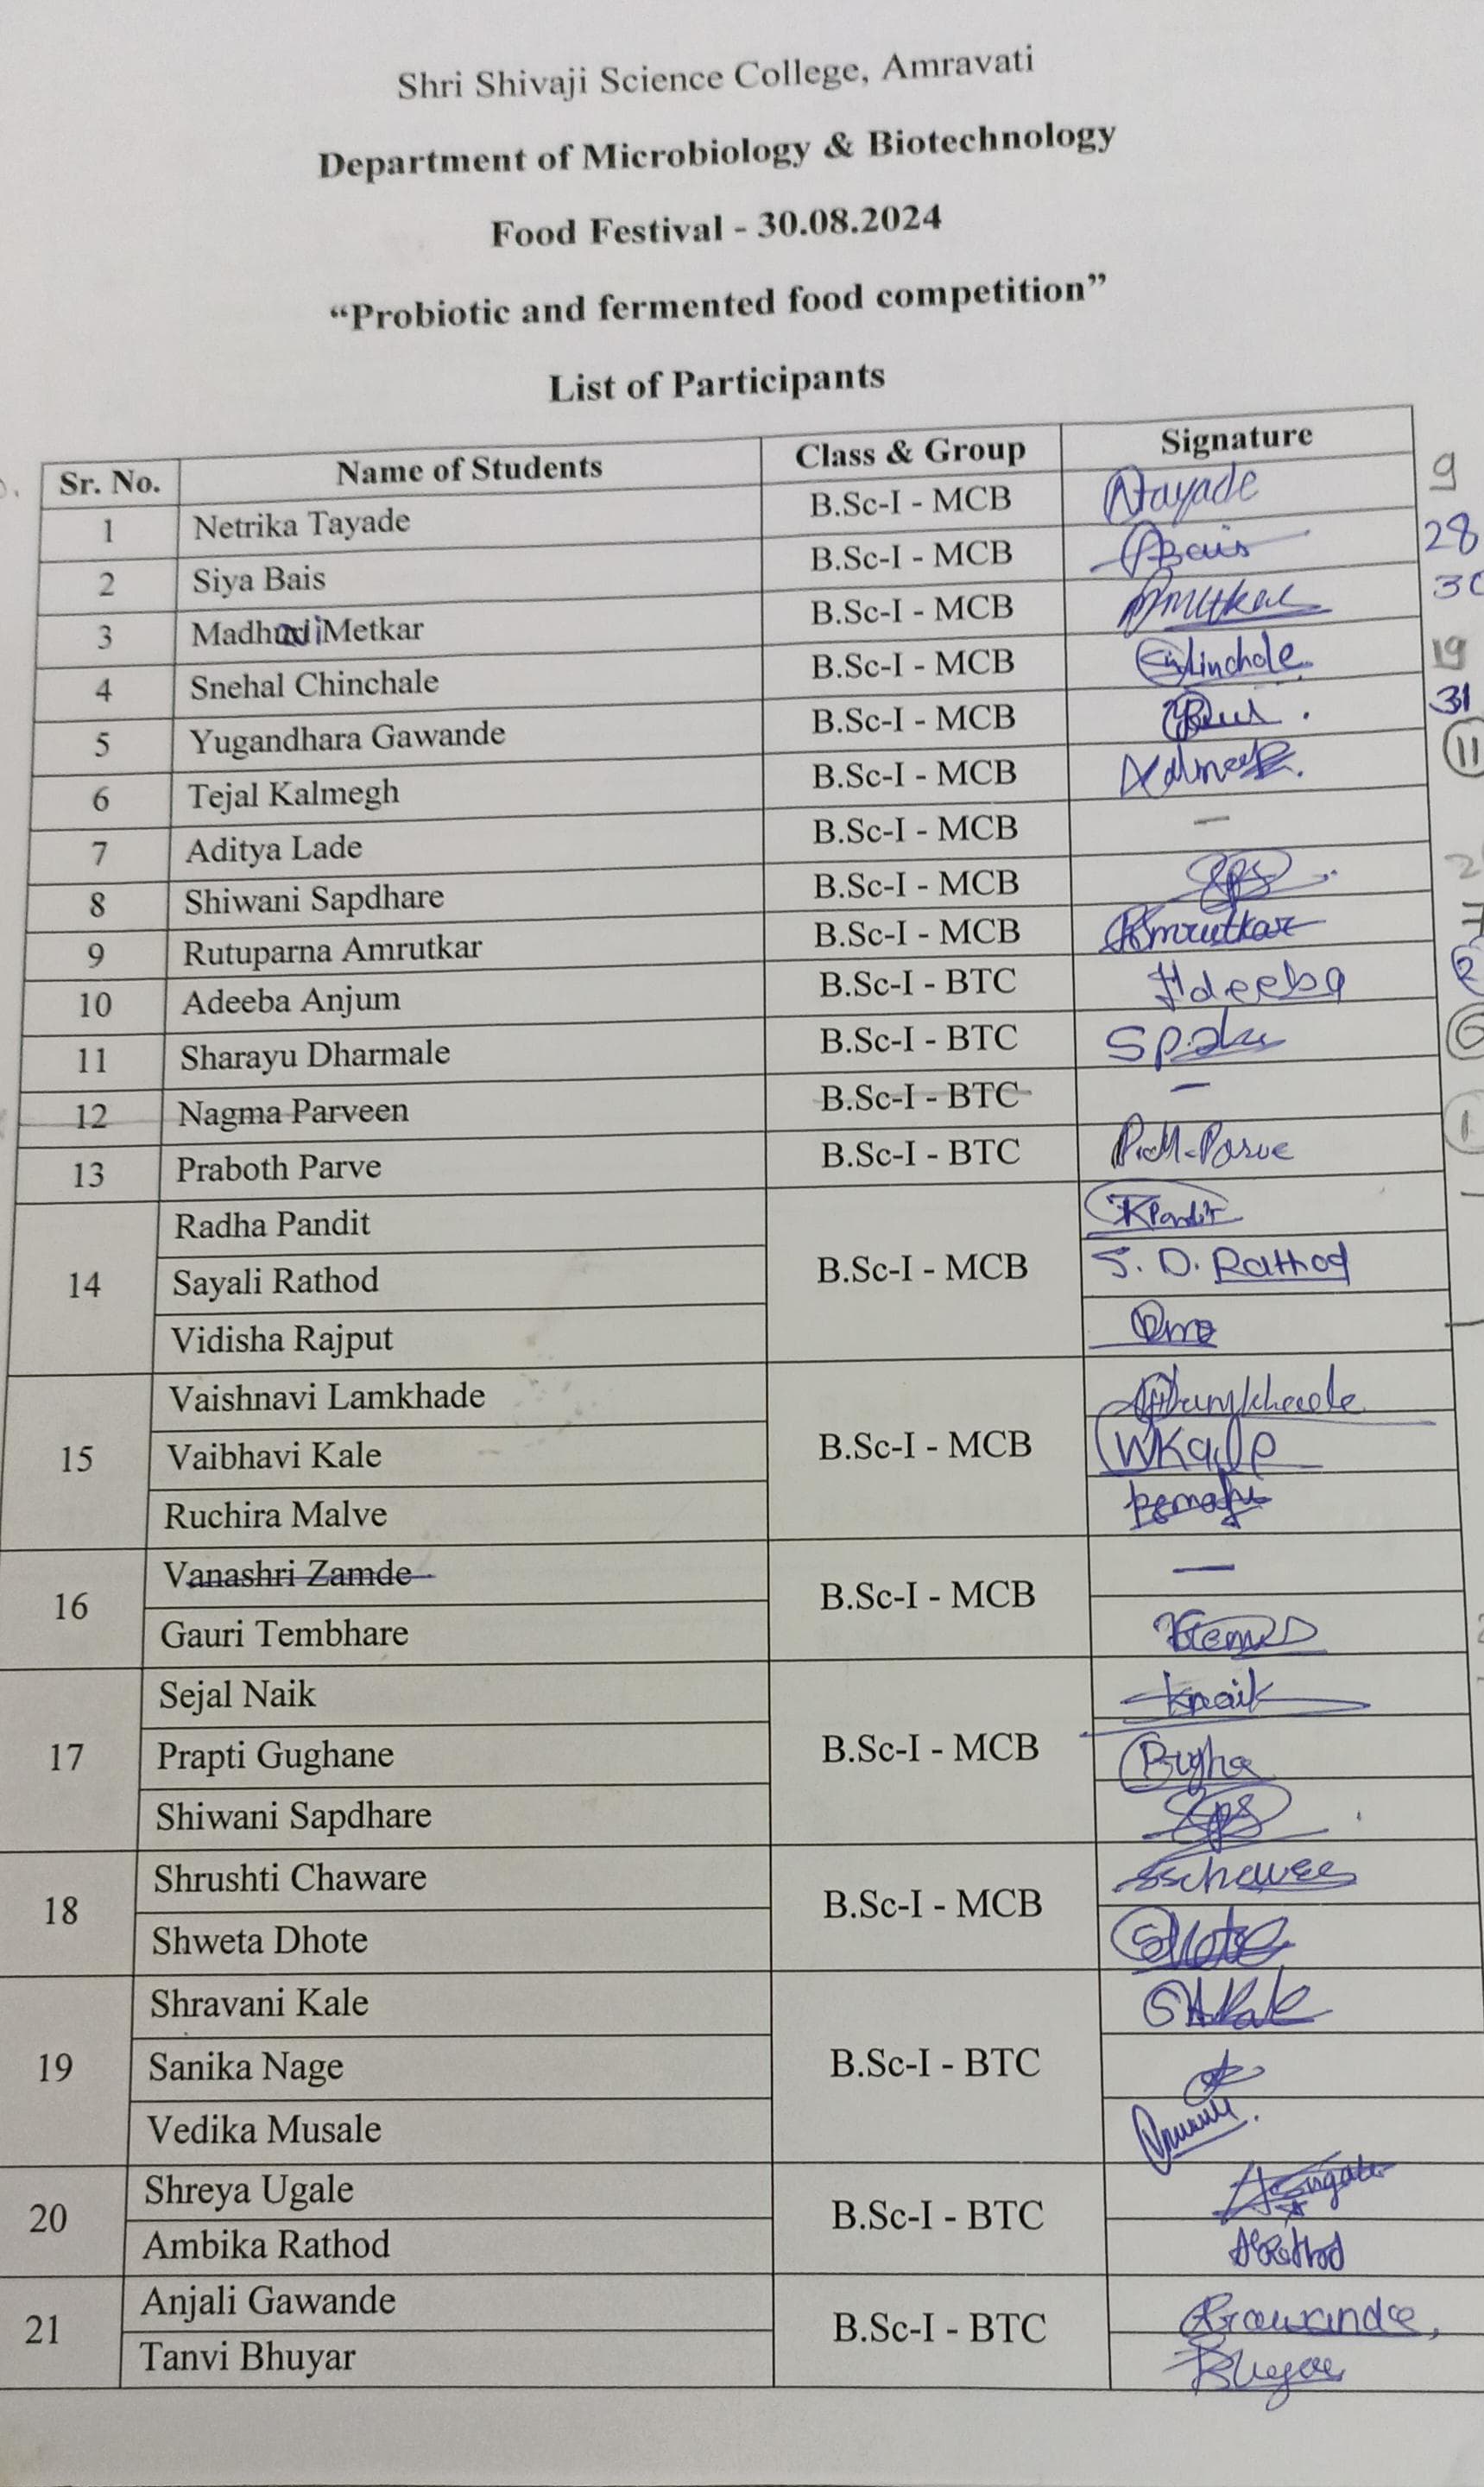 Shri Shivaji Science College, Amravati
Department of Microbiology & Biotechnology
Food Festival - 30.08.2024
“Probiotic and fermented food competition”
List of Participants
Sr. No. Name of Students Class & Group Signature
1 Netrika Tayade B.Sc-I - MCB Ntayade 9
2 Siya Bais B.Sc-I - MCB Bais 28
3 Madhuri Metkar B.Sc-I - MCB
4 Snehal Chinchale B.Sc-I - MCB 19
5 Yugandhara Gawande B.Sc-I - MCB 31
6 Tejal Kalmegh B.Sc-I - MCB 11
7 Aditya Lade B.Sc-I - MCB —
8 Shiwani Sapdhare B.Sc-I - MCB
9 Rutuparna Amrutkar B.Sc-I - MCB Amrutkar
10 Adeeba Anjum B.Sc-I - BTC Adeeba
11 Sharayu Dharmale B.Sc-I - BTC
12 Nagma Parveen B.Sc-I - BTC —
13 Praboth Parve B.Sc-I - BTC P.M.Parve
14 Radha Pandit B.Sc-I - MCB RPandit
Sayali Rathod S. D. Rathod
Vidisha Rajput
15 Vaishnavi Lamkhade B.Sc-I - MCB
Vaibhavi Kale VVKale
Ruchira Malve
16 Vanashri Zamde B.Sc-I - MCB —
Gauri Tembhare
17 Sejal Naik B.Sc-I - MCB Snaik
Prapti Gughane
Shiwani Sapdhare
18 Shrushti Chaware B.Sc-I - MCB
Shweta Dhote
19 Shravani Kale B.Sc-I - BTC
Sanika Nage
Vedika Musale
20 Shreya Ugale B.Sc-I - BTC
Ambika Rathod
21 Anjali Gawande B.Sc-I - BTC Gawande
Tanvi Bhuyar Bhuyar